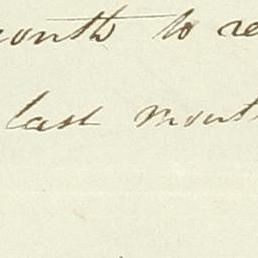 month to re
last month